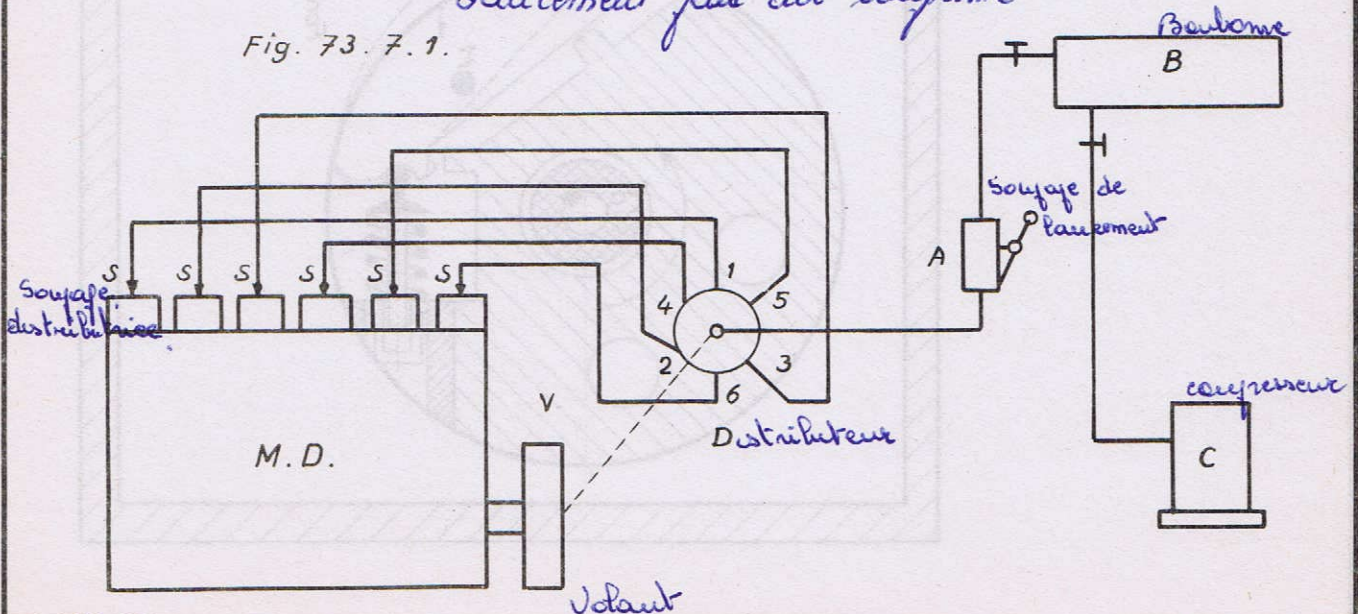 lancement par air comprimé
Fig. 73.7.1.
Bonbonne
B
Soupape de
lancement
A
S S S S S S
Soupape
distributrice.
1
4 5
2 3
6
V
Distributeur
compresseur
C
M.D.
Volant